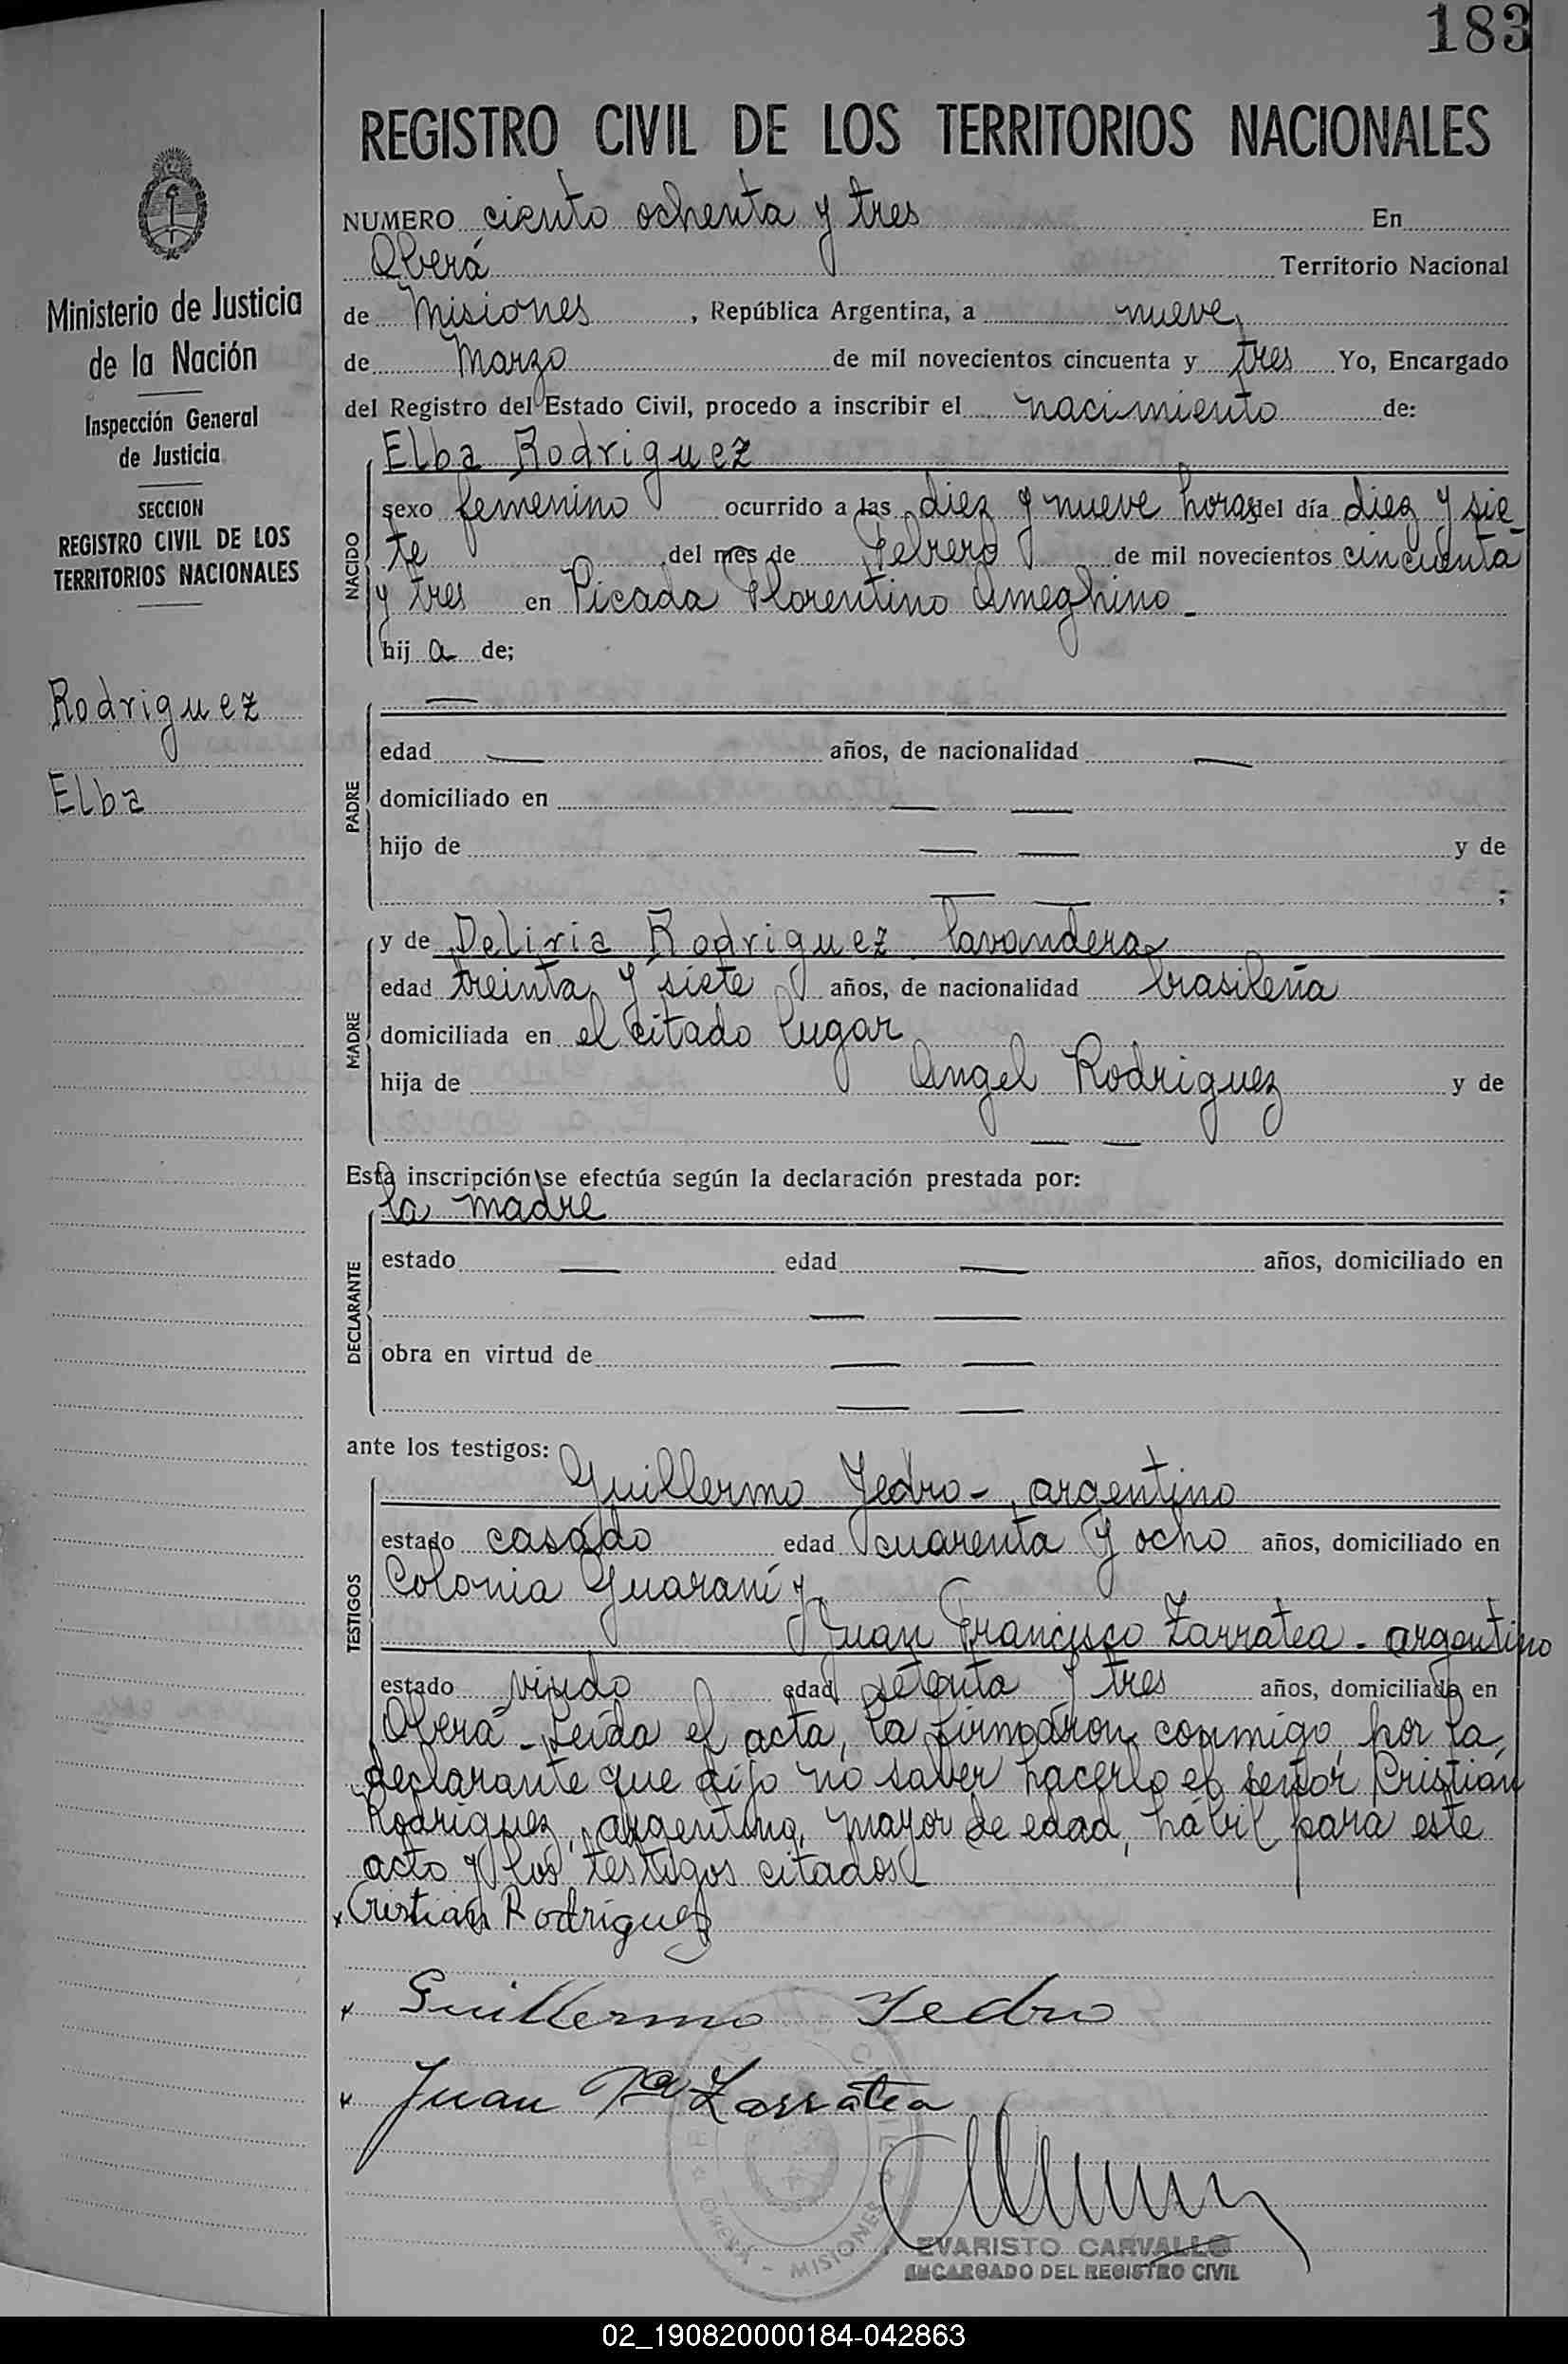 183
REGISTRO CIVIL DE LOS TERRITORIOS NACIONALES
Ministerio de Justicia
de la Nación
Inspección General
de Justicia
SECCION
REGISTRO CIVIL DE LOS
TERRITORIOS NACIONALES
Rodriguez
Elba
NUMERO ciento ochenta y tres En
Oberá Territorio Nacional
de Misiones, República Argentina, a nueve,
de Marzo de mil novecientos cincuenta y tres Yo, Encargado
del Registro del Estado Civil, procedo a inscribir el nacimiento de:
NACIDO
Elba Rodriguez
sexo femenino ocurrido a las diez y nueve horas del día diez y sie-
te del mes de Febrero de mil novecientos cincuenta
y tres en Picada Florentino Ameghino-
hij a de;
PADRE
—
edad — años, de nacionalidad —
domiciliado en — —
hijo de — — y de
— — ;
MADRE
y de Deliria Rodriguez lavandera
edad treinta y siete años, de nacionalidad brasileña
domiciliada en el citado lugar
hija de Angel Rodriguez y de
— —
Esta inscripción se efectúa según la declaración prestada por:
DECLARANTE
la madre
estado — edad — años, domiciliado en
— —
obra en virtud de — —
— —
ante los testigos:
TESTIGOS
Guillermo Yedro-, argentino
estado casado edad cuarenta y ocho años, domiciliado en
Colonia Guaraní y
Juan Francisco Zarratea - argentino
estado viudo edad setenta y tres años, domiciliado en
Oberá - Leída el acta, la firmaron conmigo, por la
declarante que dijo no saber hacerlo el señor Cristian
Rodriguez, argentino, mayor de edad, hábil para este
acto y los testigos citados
x Cristian Rodriguez
x Guillermo Yedro
x Juan Fco Zarratea
OBERA - MISIONES
EVARISTO CARVALLO
ENCARGADO DEL REGISTRO CIVIL
02_190820000184-042863